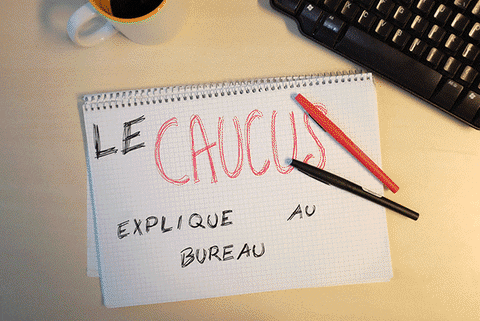 LE CAUCUS
EXPLIQUE AU
BUREAU